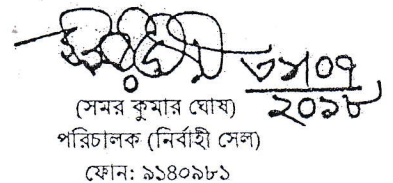 ২০১৮
(সমর কুমার ঘোষ)
পরিচালক (নির্বাহী সেল)
ফোন: ৯১৪০৯৮১